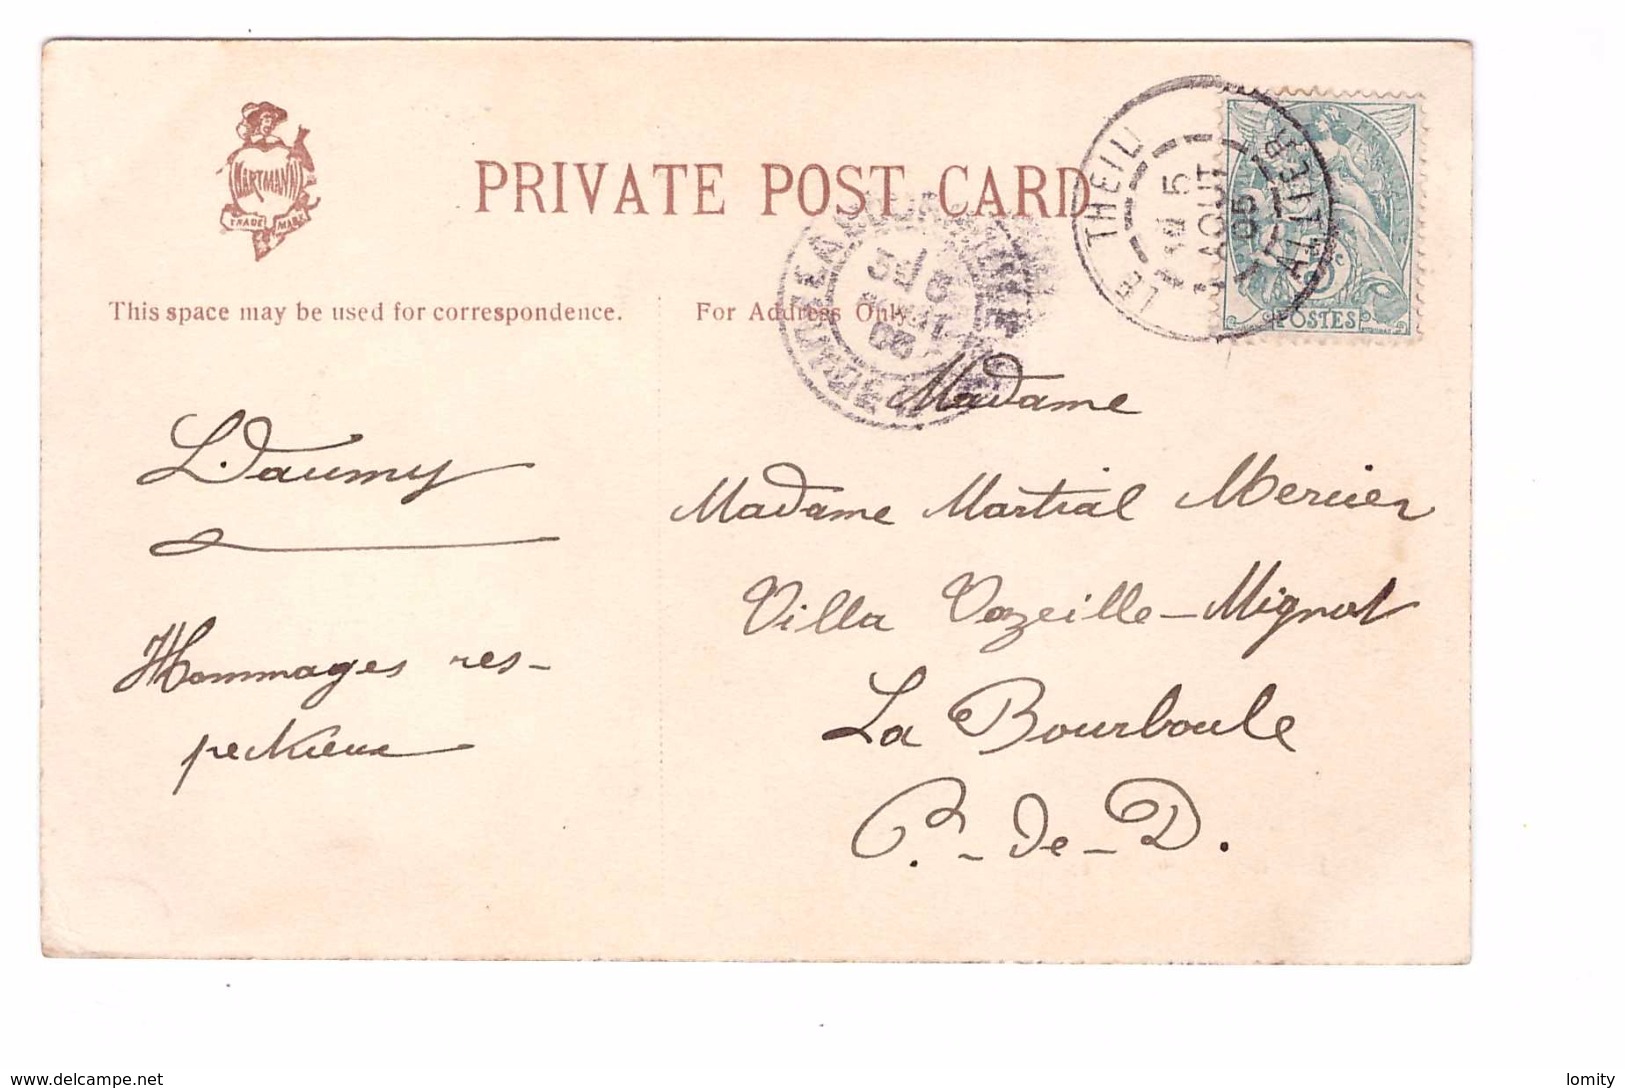 HARTMANN
TRADE MARK
PRIVATE POST CARD
LE THEIL
5
AOUT
05
POSTES
This space may be used for correspondence.
For Address Only.
Madame
L. Daumy
Madame Martial Mercier
Villa Vezeille-Mignot
Hommages res-
pectueux
La Bourboule
P.-de-D.
www.delcampe.net
lomity